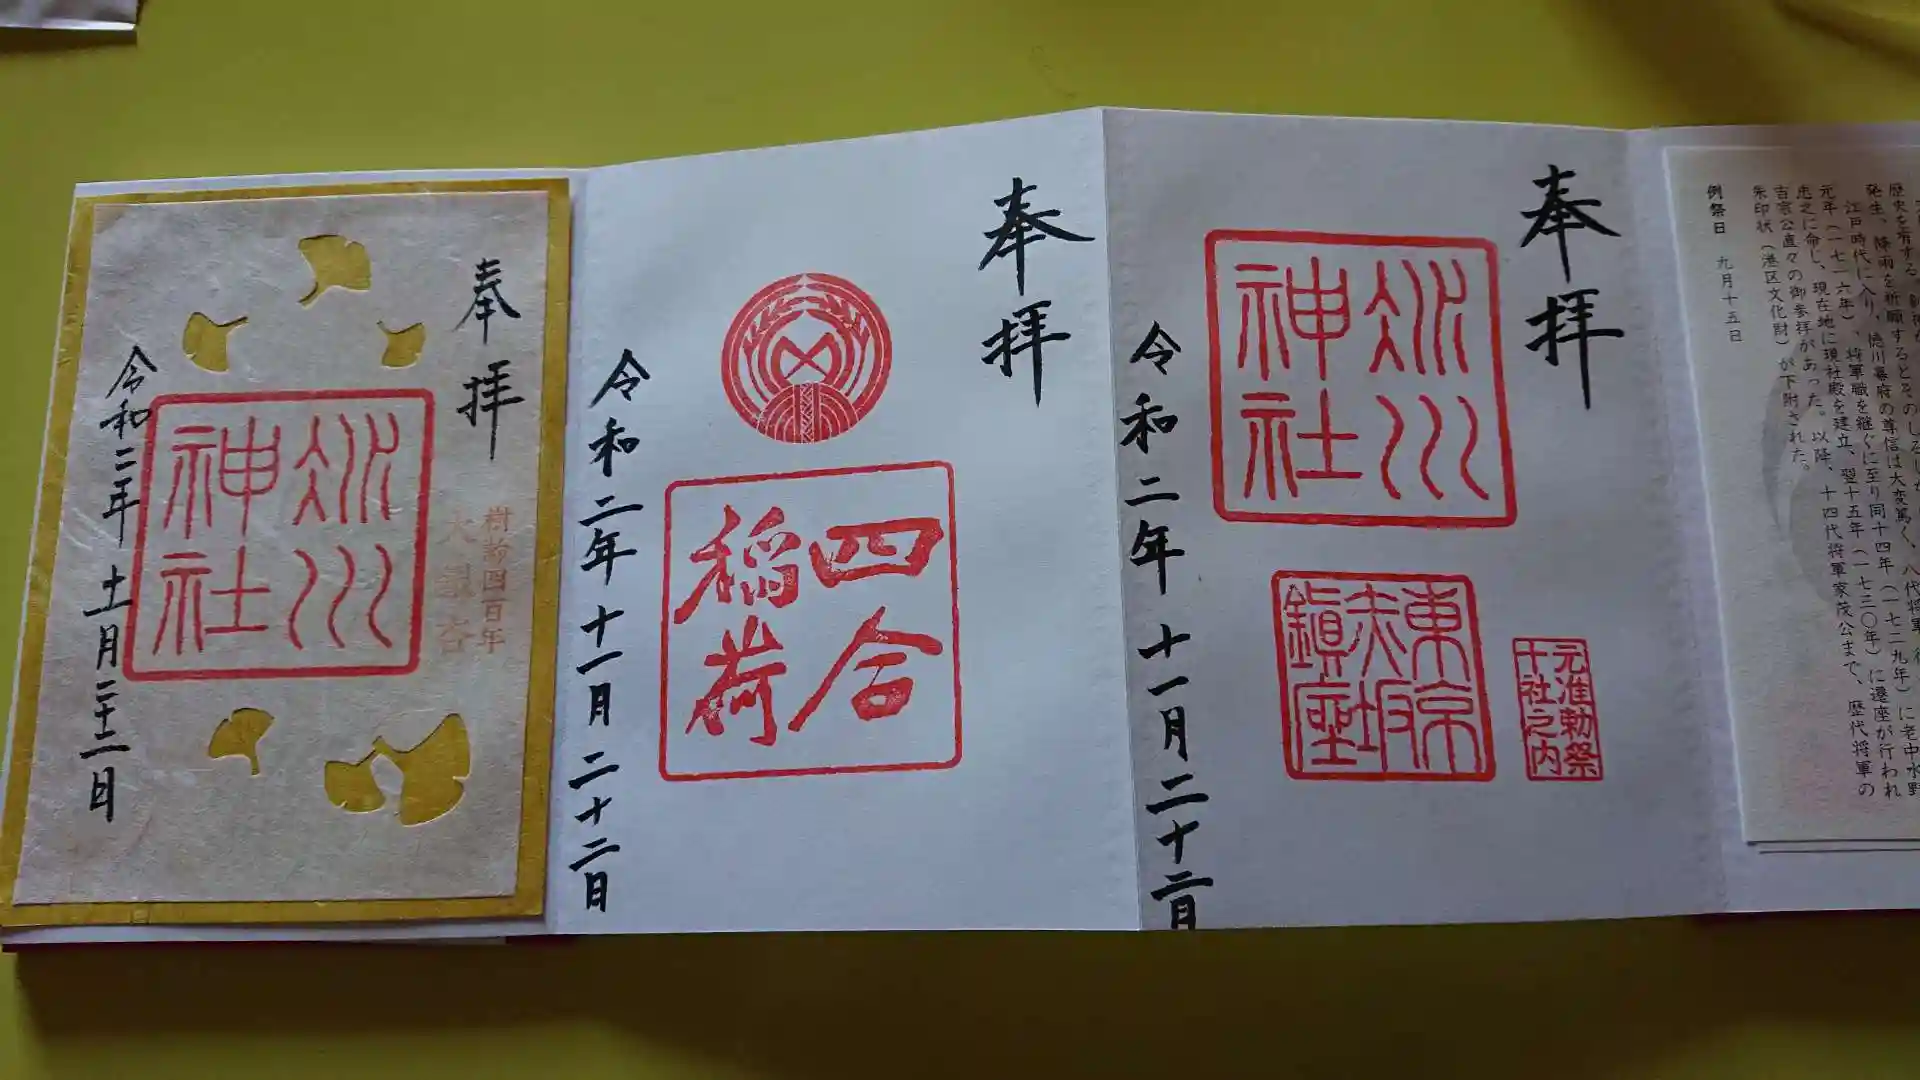 歴史を有する。
発生、降雨を祈願するとそのしるし
江戸時代に入り、徳川幕府の尊信は大変篤く、八代将軍
元年（一七一六年）、将軍職を継ぐに至り同十四年（一七二九年）に老中水野
忠之に命じ、現在地に現社殿を建立、翌十五年（一七三〇年）に遷座が行われ
吉宗公直々の御参拝があった。以降、十四代将軍家茂公まで、歴代将軍の
朱印状（港区文化財）が下附された。
例祭日 九月十五日
奉拝
氷川
神社
元准勅祭
十社之内
東京
赤坂
鎭座
令和二年十一月二十二日
奉拝
四合
稲荷
令和二年十一月二十二日
奉拝
樹齢四百年
大銀杏
氷川
神社
令和二年十一月二十二日